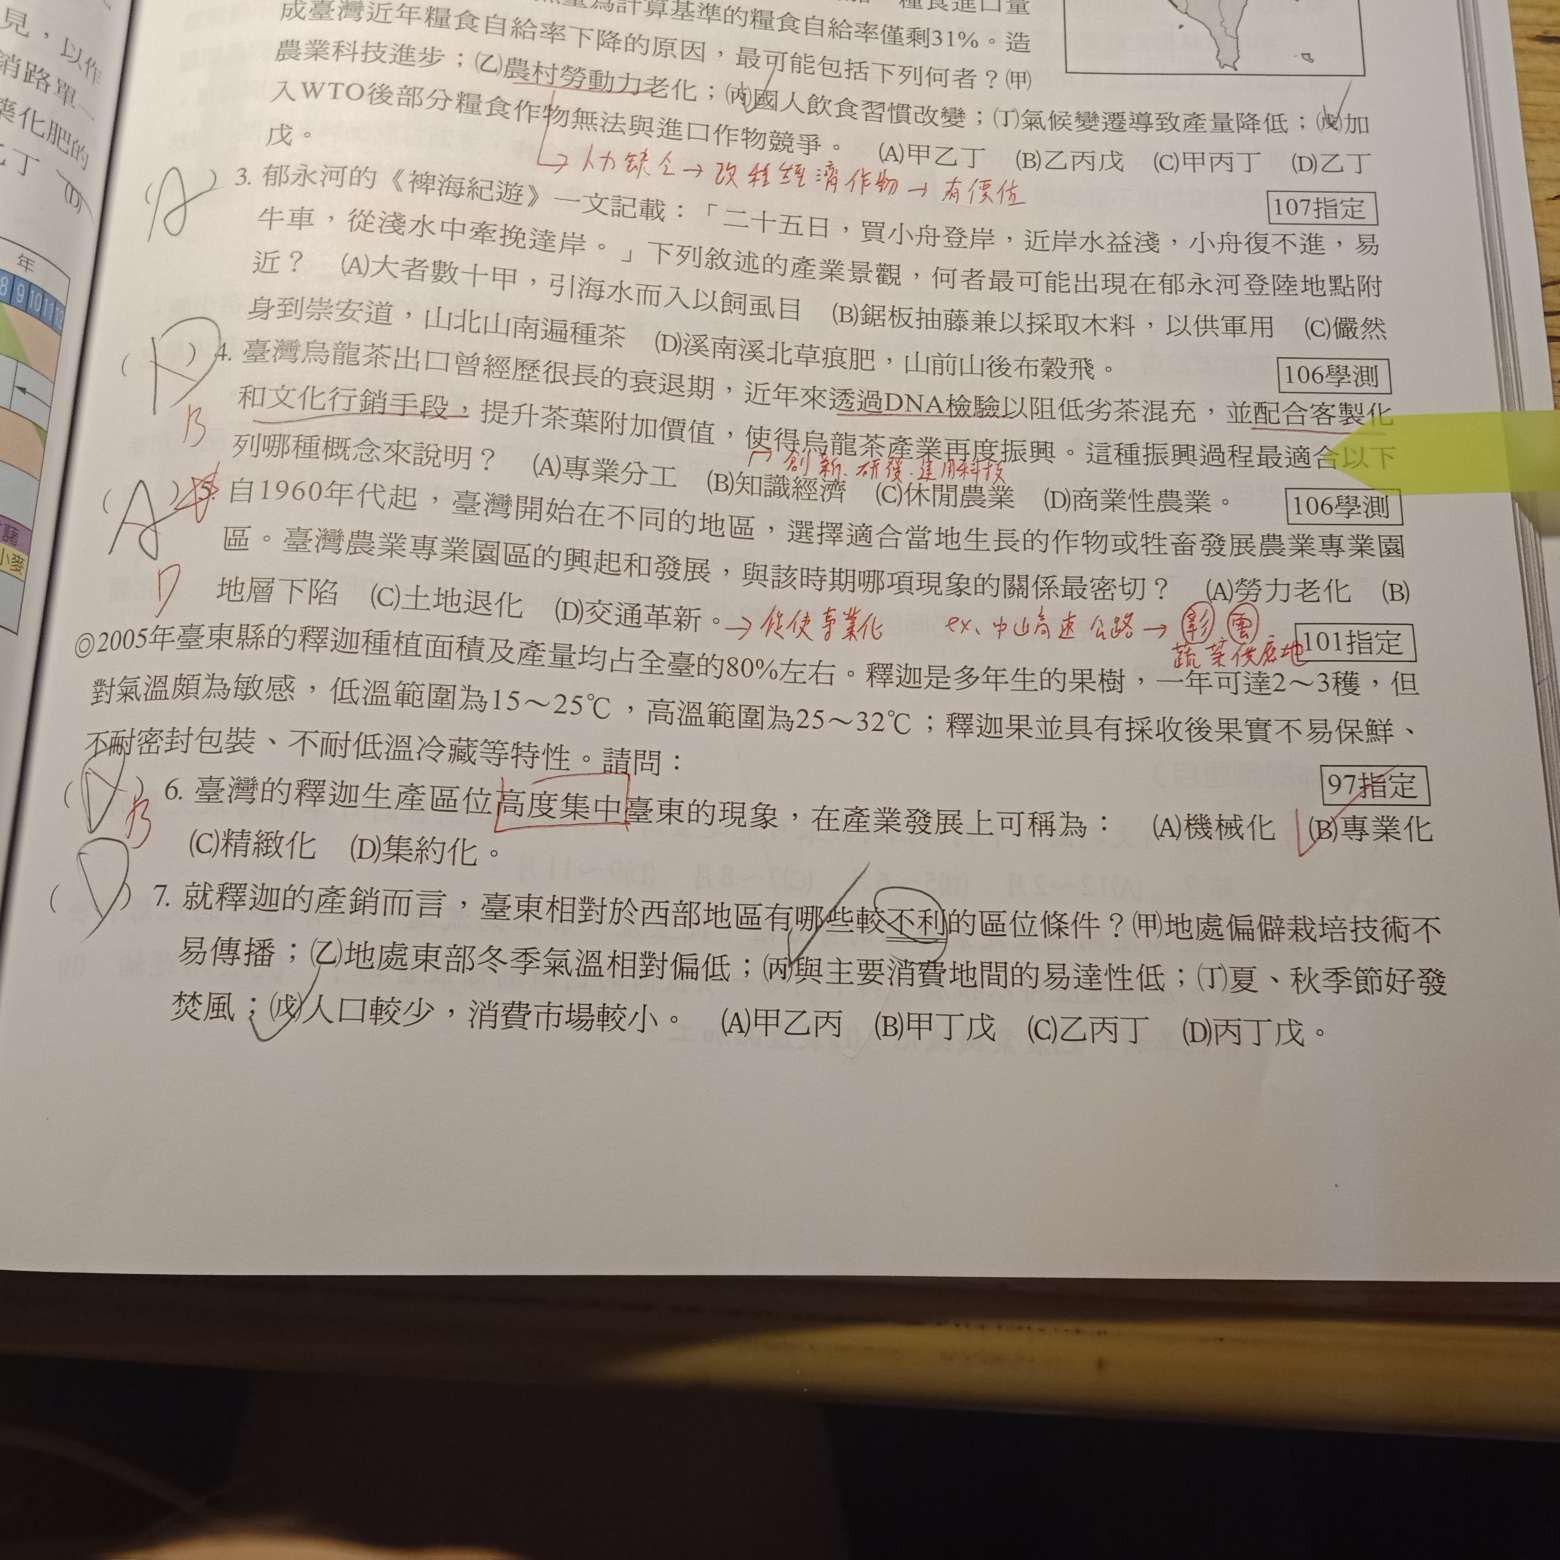 見，以作
銷路單一
藥化肥的
乙丁 (D)
年
8 9 10 11 12
小麥
為計算基準的糧食自給率僅剩31%。造
糧食進口量
成臺灣近年糧食自給率下降的原因，最可能包括下列何者？㈙
農業科技進步；㈚農村勞動力老化；㈛國人飲食習慣改變；㈜氣候變遷導致產量降低；㈝加
入WTO後部分糧食作物無法與進口作物競爭。 (A)甲乙丁 (B)乙丙戊 (C)甲丙丁 (D)乙丁
戊。
→人力缺乏→改種經濟作物→有價值
107指定
(A) 3. 郁永河的《裨海紀遊》一文記載：「二十五日，買小舟登岸，近岸水益淺，小舟復不進，易
牛車，從淺水中牽挽達岸。」下列敘述的產業景觀，何者最可能出現在郁永河登陸地點附
近？ (A)大者數十甲，引海水而入以飼虱目 (B)鋸板抽藤兼以採取木料，以供軍用 (C)儼然
身到崇安道，山北山南遍種茶 (D)溪南溪北草痕肥，山前山後布穀飛。
106學測
(D) 4. 臺灣烏龍茶出口曾經歷很長的衰退期，近年來透過DNA檢驗以阻低劣茶混充，並配合客製化
B
和文化行銷手段，提升茶葉附加價值，使得烏龍茶產業再度振興。這種振興過程最適合以下
創新、研發、運用科技
列哪種概念來說明？ (A)專業分工 (B)知識經濟 (C)休閒農業 (D)商業性農業。
106學測
(A) 5. 自1960年代起，臺灣開始在不同的地區，選擇適合當地生長的作物或牲畜發展農業專業園
D
區。臺灣農業專業園區的興起和發展，與該時期哪項現象的關係最密切？ (A)勞力老化 (B)
地層下陷 (C)土地退化 (D)交通革新。→促使專業化 ex、中山高速公路→彰雲
蔬菜供應地
101指定
◎2005年臺東縣的釋迦種植面積及產量均占全臺的80%左右。釋迦是多年生的果樹，一年可達2～3穫，但
對氣溫頗為敏感，低溫範圍為15～25℃，高溫範圍為25～32℃；釋迦果並具有採收後果實不易保鮮、
不耐密封包裝、不耐低溫冷藏等特性。請問：
97指定
(D) B 6. 臺灣的釋迦生產區位高度集中臺東的現象，在產業發展上可稱為： (A)機械化 (B)專業化
(C)精緻化 (D)集約化。
(D) 7. 就釋迦的產銷而言，臺東相對於西部地區有哪些較不利的區位條件？㈙地處偏僻栽培技術不
易傳播；㈚地處東部冬季氣溫相對偏低；㈛與主要消費地間的易達性低；㈜夏、秋季節好發
焚風；㈝人口較少，消費市場較小。 (A)甲乙丙 (B)甲丁戊 (C)乙丙丁 (D)丙丁戊。